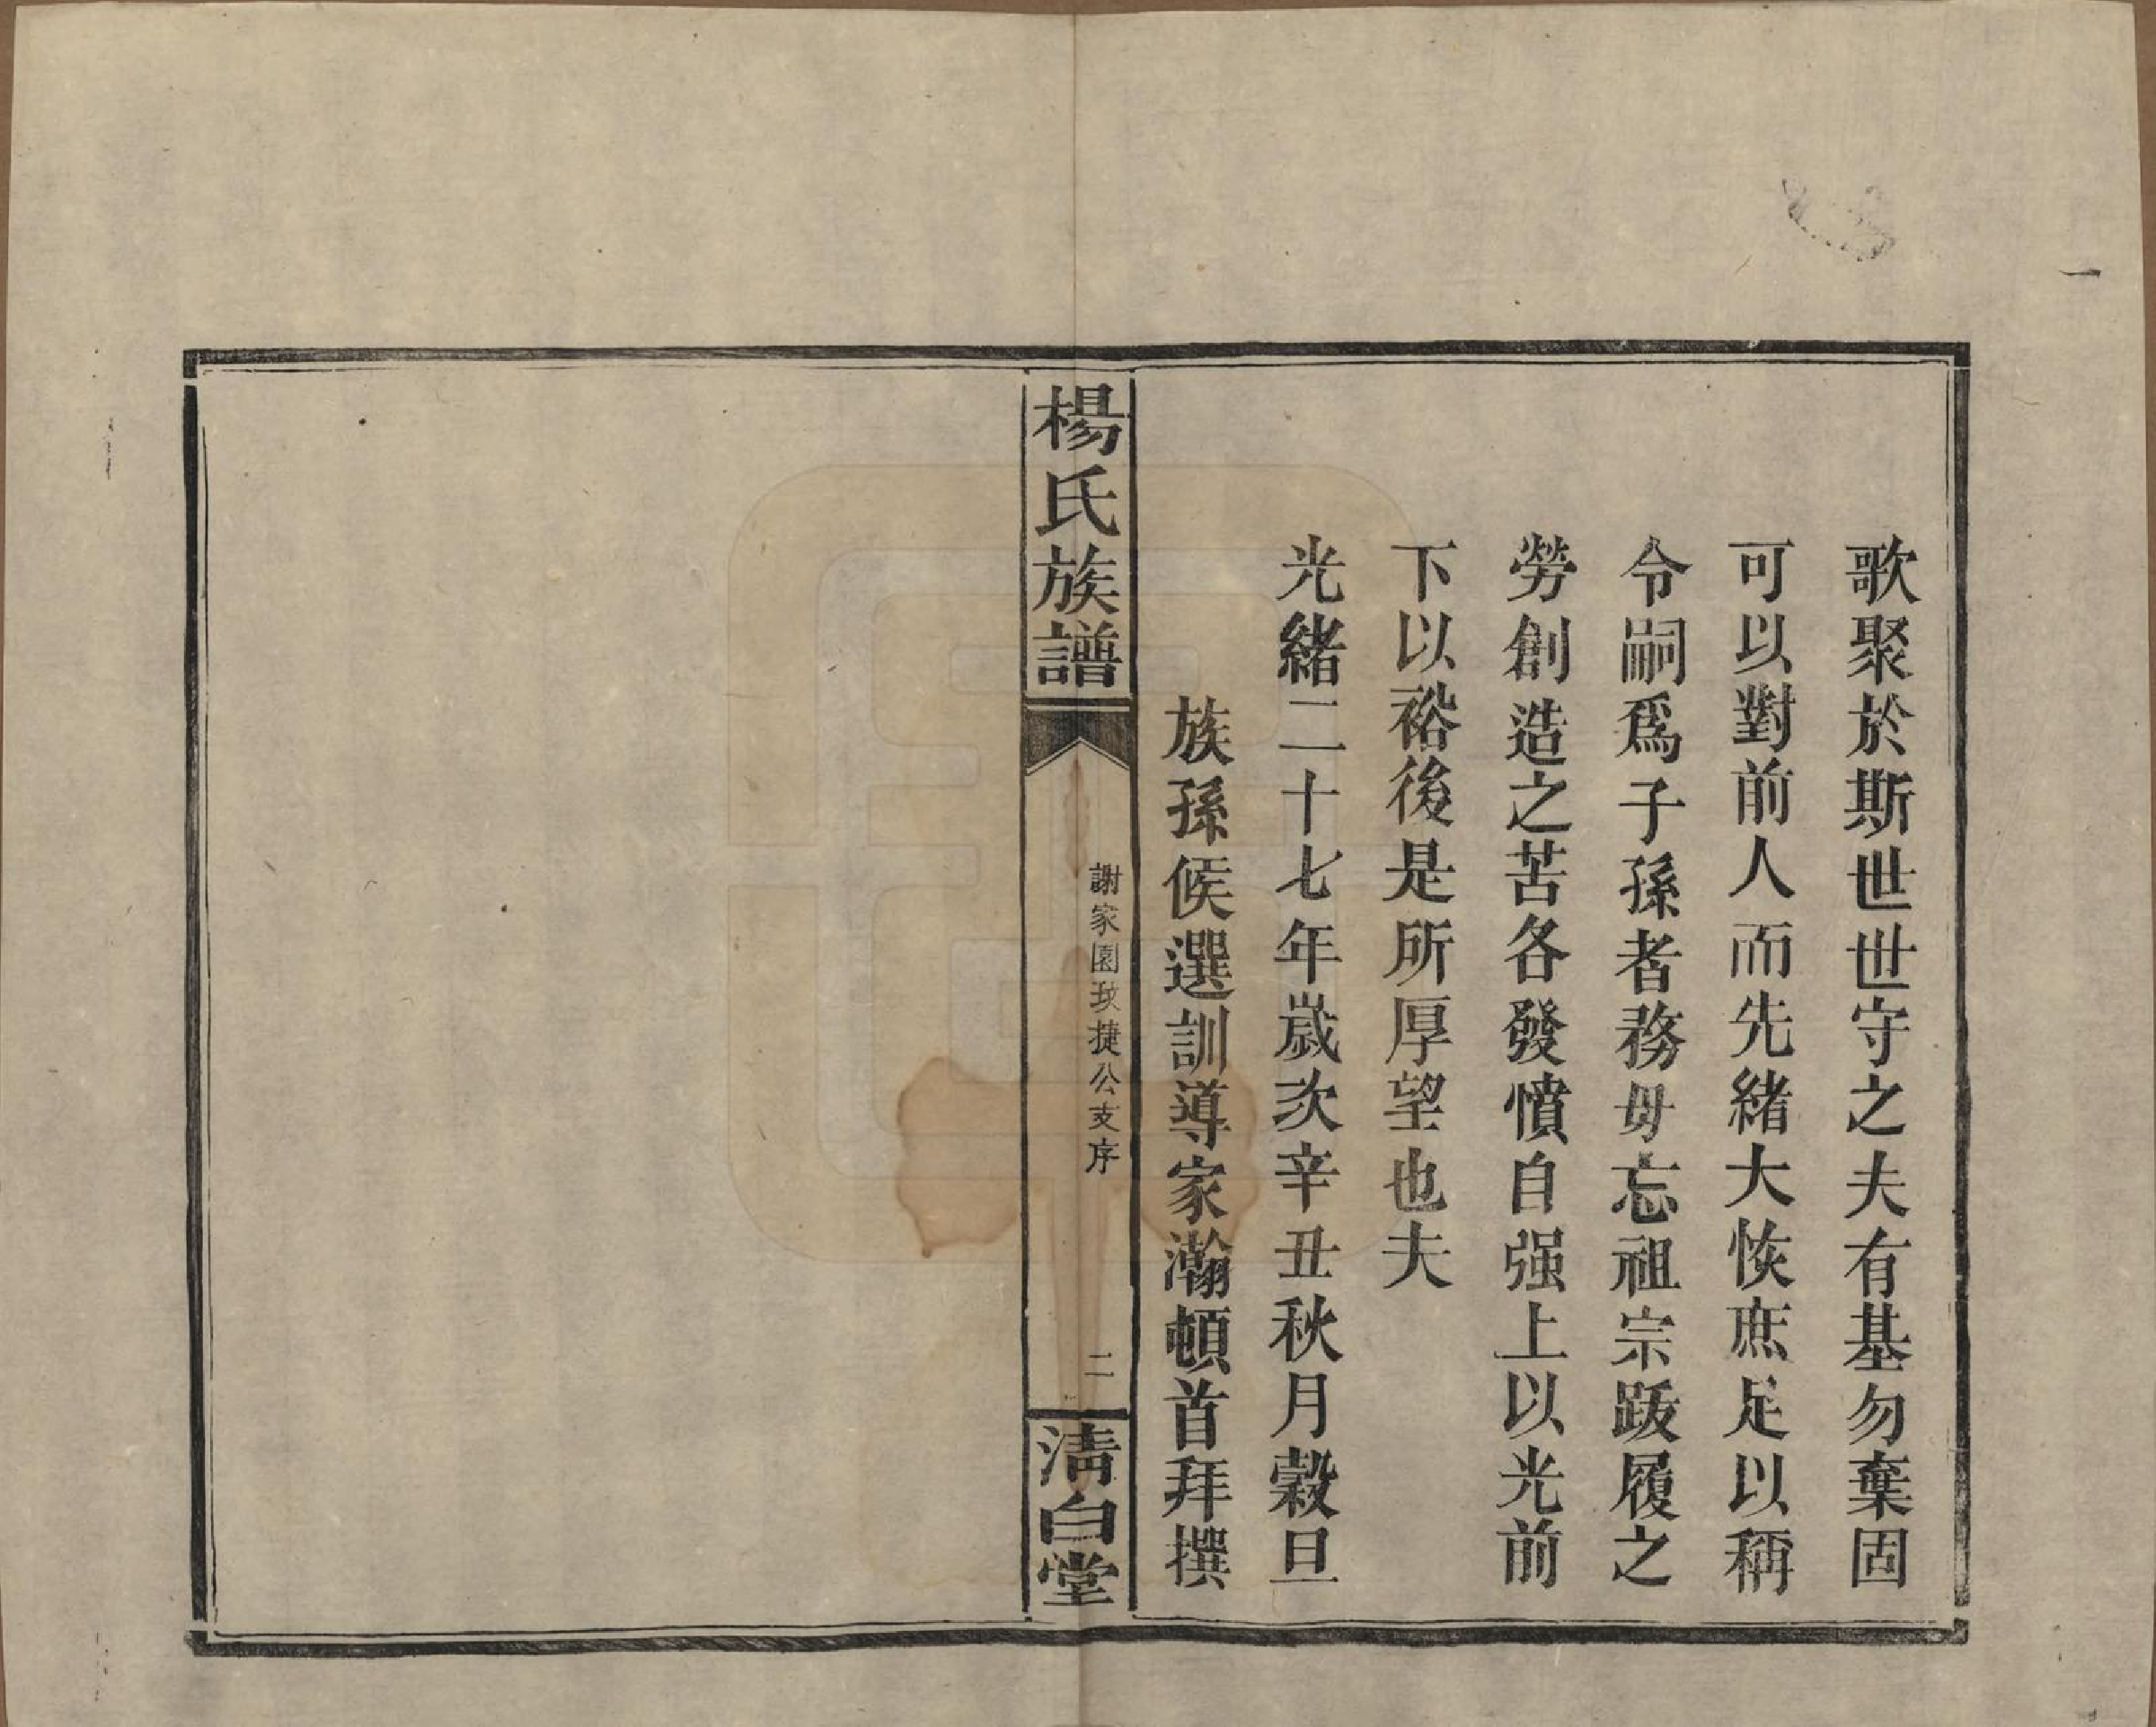 歌聚於斯世世守之夫有基勿棄固
可以對前人而先緒大恢庶足以稱
令嗣爲子孫者務毋忘祖宗跋履之
勞創造之苦各發憤自强上以光前
下以裕後是所厚望也夫
光緒二十七年歲次辛丑秋月穀旦
族孫候選訓導家瀚頓首拜撰
楊氏族譜
謝家園玟捷公支序
二
淸白堂